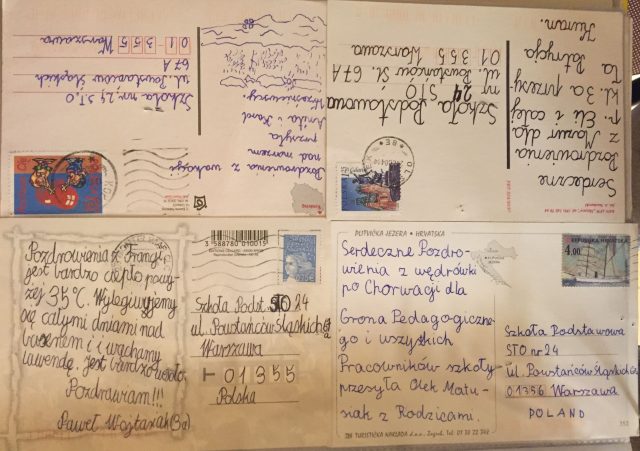 Pozdrowienia z wakacji
nad morzem
przesyła
Anita i Karol
Szkoła nr 24 S.T.O
ul. Powstańców Śląskich
67A
01-355
Warszawa
Serdeczne
Pozdrowienia
z Mazur dla
p. Eli i całej
kl. 3a przesy-
ła Patrycja
Szkoła Podstawowa
nr 24 STO
ul. Powstańców Śl. 67A
01 355 Warszawa
Pozdrowienia z Francji
jest bardzo ciepło powy-
żej 35°C. Wylegujemy
się całymi dniami nad
basenem i i wąchamy
lawendę. Jest bardzo wesoło.
Pozdrawiam!!!
Paweł Wojtasiak (3a)
3 588780 010015
Szkoła Podst. STO 24
ul. Powstańców Śląskich
Warszawa
01355
Polska
PLITVIČKA JEZERA • HRVATSKA
Serdeczne Pozdro-
wienia z wędrówki
po Chorwacji dla
Grona Pedagogiczne-
go i wszystkich
Pracowników szkoły
przesyła Olek Matu-
siak z Rodzicami.
REPUBLIKA HRVATSKA
4,00
Szkoła Podstawowa
STO nr 24
ul. Powstańców Śląskich
01356 Warszawa
POLAND
TURISTIČKA NAKLADA d.o.o., Zagreb